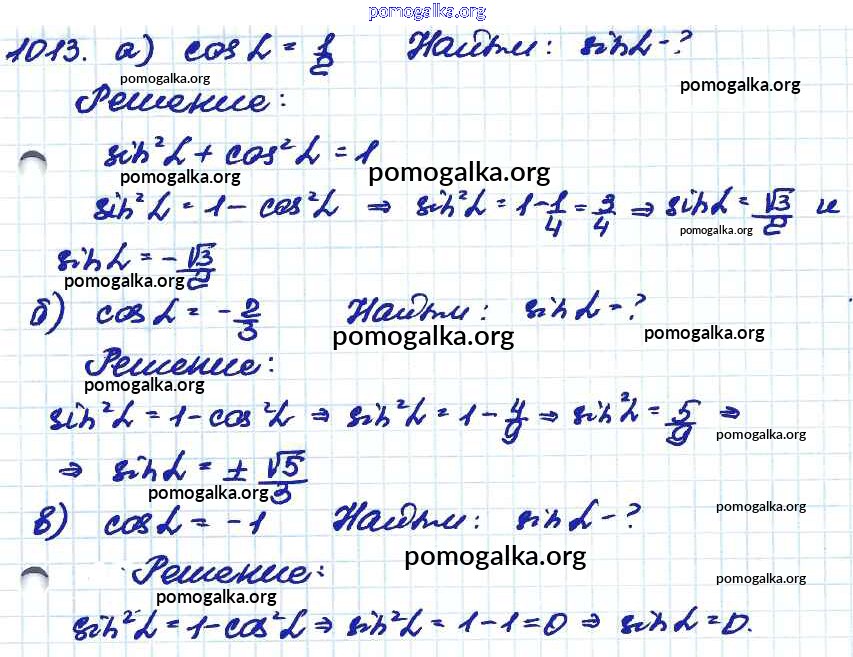 pomogalka.org
1013. а) cos α = 1/2 Найти: sin α - ?
pomogalka.org
pomogalka.org
Решение:
sin² α + cos² α = 1
pomogalka.org pomogalka.org
sin² α = 1 - cos² α ⇒ sin² α = 1 - 1/4 = 3/4 ⇒ sin α = √3/2 и
pomogalka.org
sin α = - √3/2
pomogalka.org
б) cos α = - 2/3 Найти: sin α - ?
pomogalka.org pomogalka.org
Решение:
pomogalka.org
sin² α = 1 - cos² α ⇒ sin² α = 1 - 4/9 ⇒ sin² α = 5/9 ⇒
pomogalka.org
⇒ sin α = ± √5/3
pomogalka.org
pomogalka.org
в) cos α = -1 Найти: sin α - ?
pomogalka.org
Решение:
pomogalka.org
pomogalka.org
sin² α = 1 - cos² α ⇒ sin² α = 1 - 1 = 0 ⇒ sin α = 0.